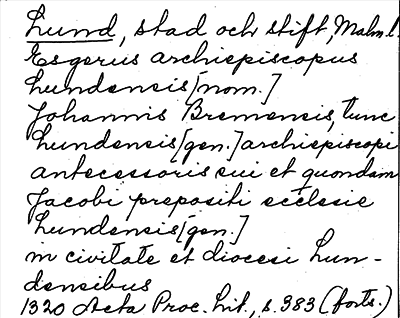 Lund, stad och stift, Malm.l.
Esgerus archiepiscopus
Lundensis [nom.]
Johannis Bremensis, tunc
Lundensis [gen.] archiepiscopi
antecessoris sui et quondam
Jacobi prepositi ecclesie
Lundensis [gen.]
in civitate et diocesi Lun-
densibus
1320 Acta Proc. Lit., s. 383 (forts.)